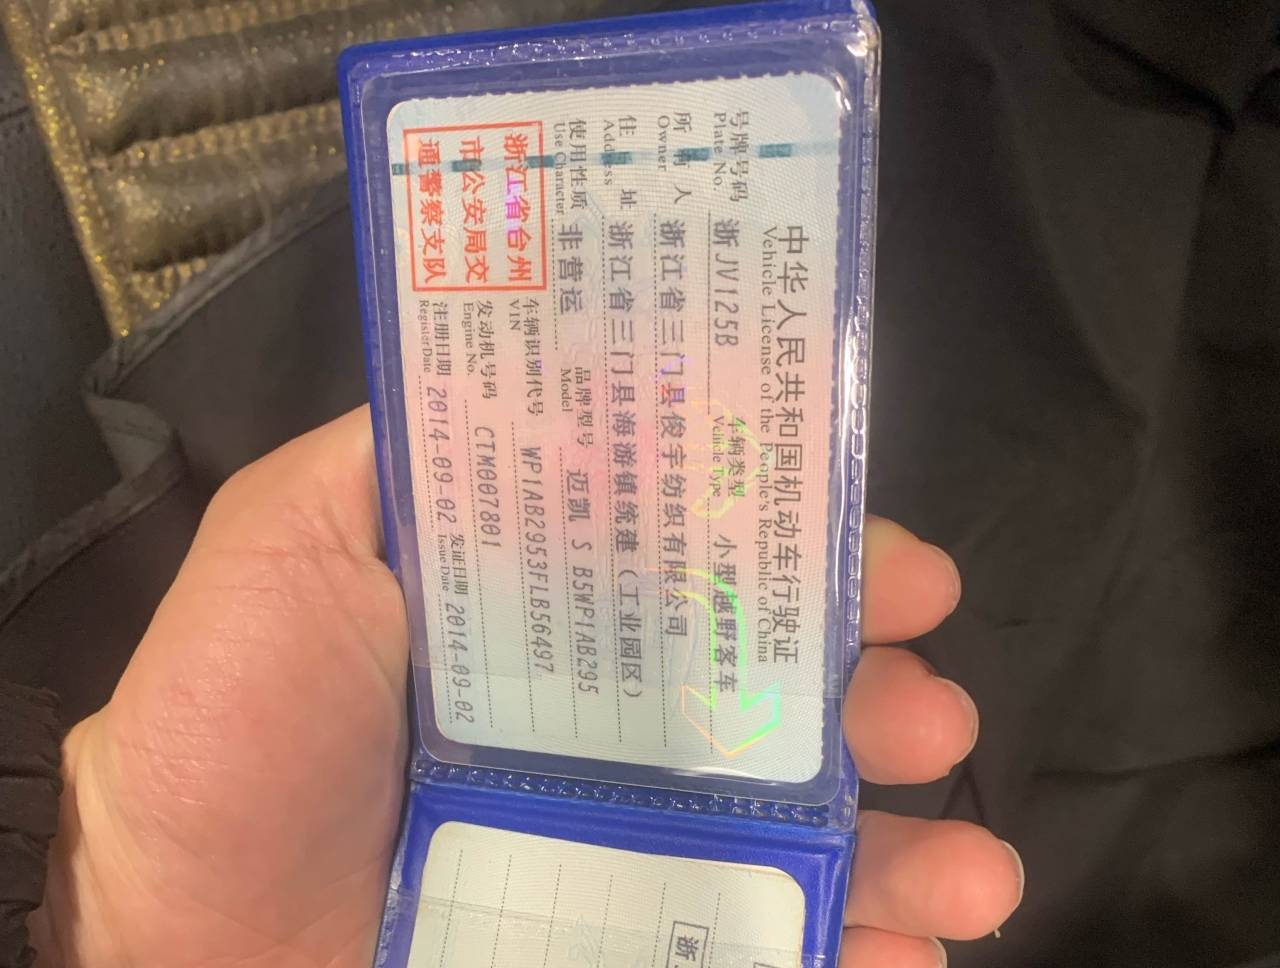 中华人民共和国机动车行驶证
Vehicle License of the People's Republic of China
号牌号码 浙JV125B 车辆类型 小型越野客车
Plate No. Vehicle Type
所有人 浙江省三门县俊宇纺织有限公司
Owner
住址 浙江省三门县海游镇统建（工业园区）
Address
使用性质 非营运 品牌型号 迈凯 S B5WP1AB295
Use Character Model
浙江省台州
市公安局交
通警察支队
车辆识别代号 WP1AB2953FLB56497
VIN
发动机号码 CTM007801
Engine No.
注册日期 2014-09-02 发证日期 2014-09-02
Register Date Issue Date
浙